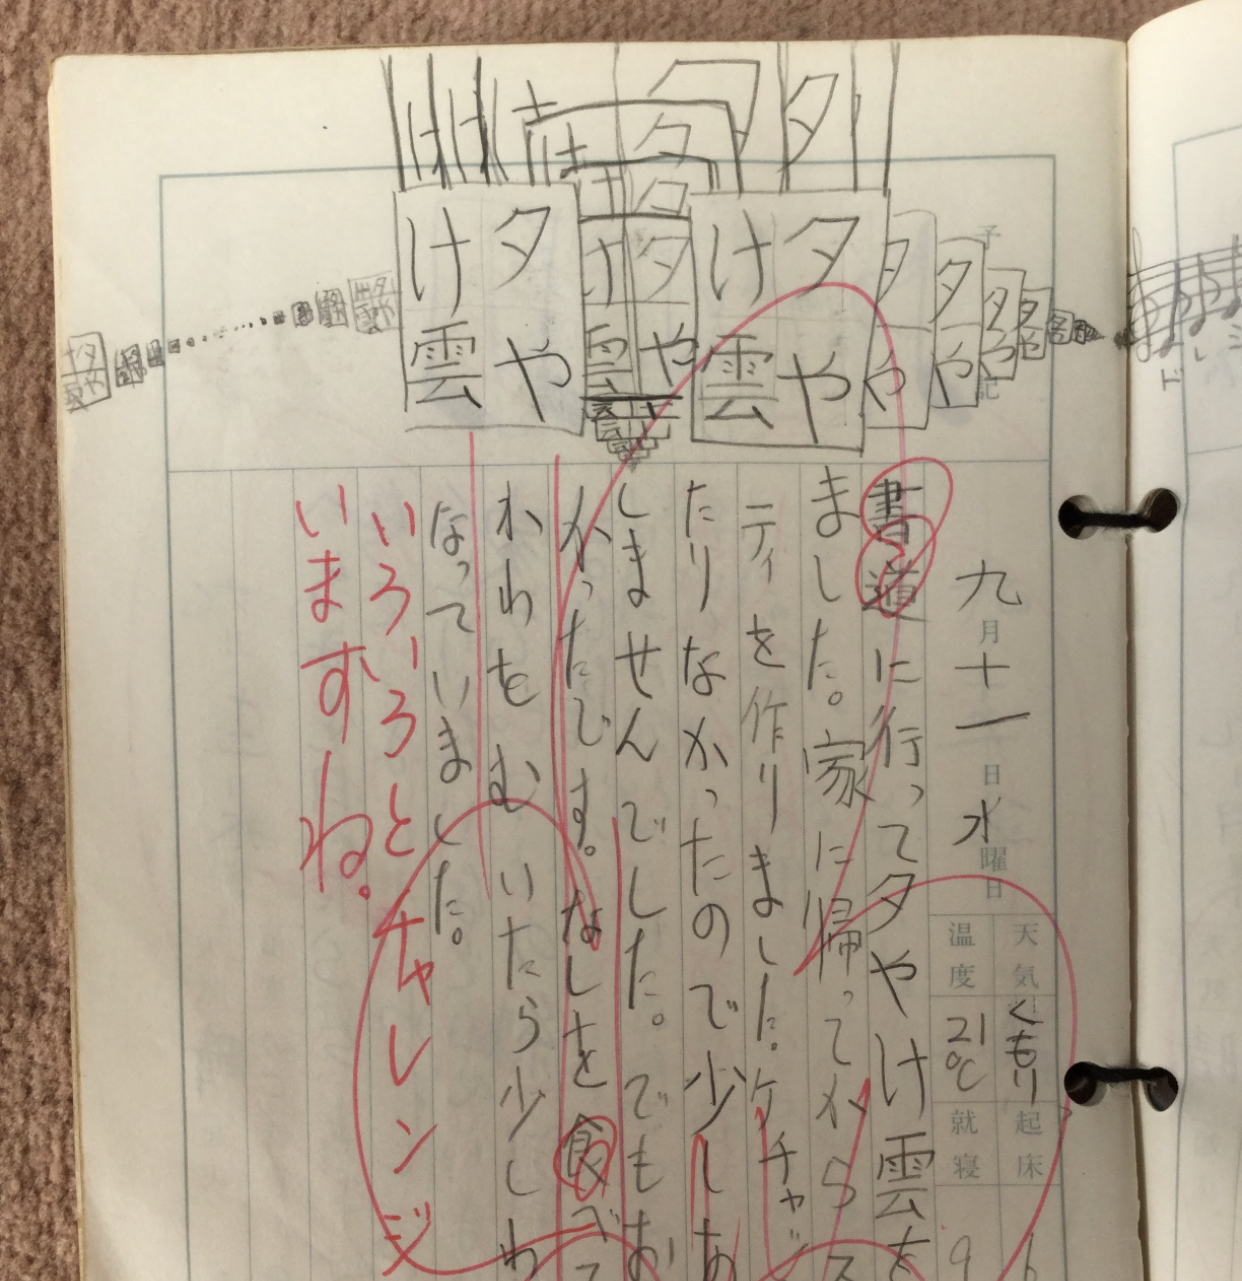 予記
夕やけ雲
夕やけ雲
九月十一日水曜日
天気 くもり
温度 21℃
起床 6
就寝 9
書道に行って夕やけ雲を
ました。家に帰ってからス
ティを作りました。ケチャッ
たりなかったので少しあ
しませんでした。でもお
かったです。なしを食べて
かわをむいたら少しわ
なっていました。
いろいろとチャレンジ
いますね。
ド レ ミ